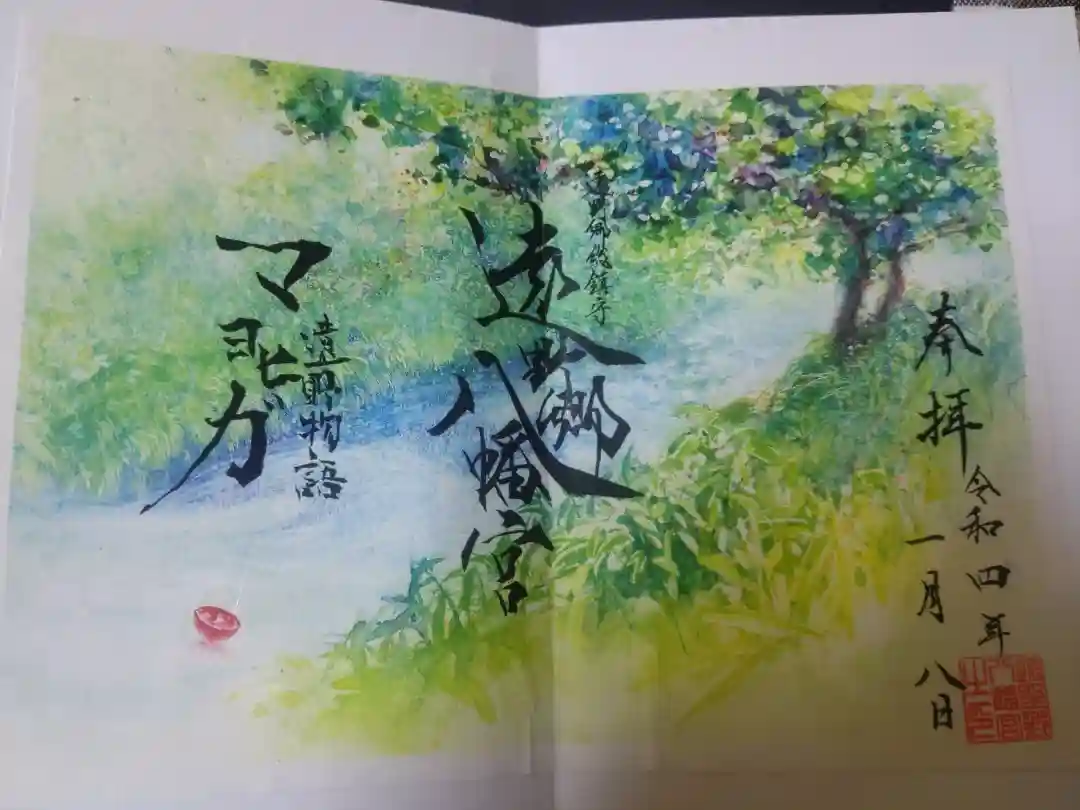 奉拝
令和四年
一月八日
遠野郷総鎮守
遠野郷八幡宮
遠野物語
マヨヒガ